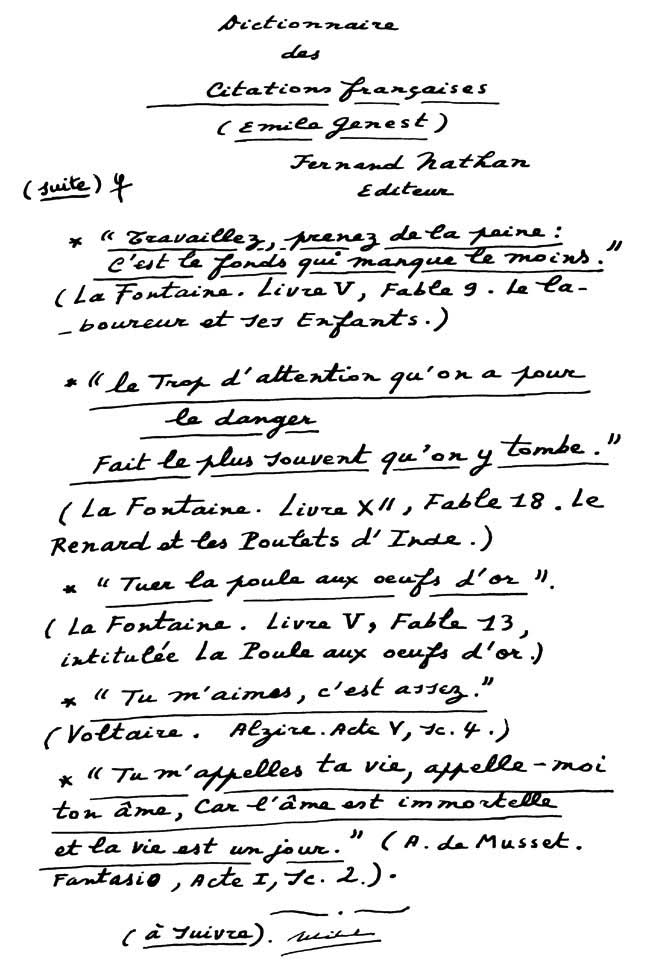 Dictionnaire
des
Citations françaises
(Emile Genest)
Fernand Nathan
(suite) Editeur
* " Travaillez, prenez de la peine :
C'est le fonds qui manque le moins."
(La Fontaine. Livre V, Fable 9. Le la-
_boureur et ses Enfants.)
* " le Trop d'attention qu'on a pour
le danger
Fait le plus souvent qu'on y tombe."
(La Fontaine. Livre XII, Fable 18. Le
Renard et les Poulets d'Inde.)
* " Tuer la poule aux oeufs d'or ".
(La Fontaine. Livre V, Fable 13,
intitulée La Poule aux oeufs d'or.)
* " Tu m'aimes, c'est assez."
(Voltaire. Alzire. Acte V, sc. 4.)
* " Tu m'appelles ta vie, appelle-moi
ton âme, Car l'âme est immortelle
et la vie est un jour." (A. de Musset.
Fantasio, Acte I, Sc. 2.).
(à suivre).